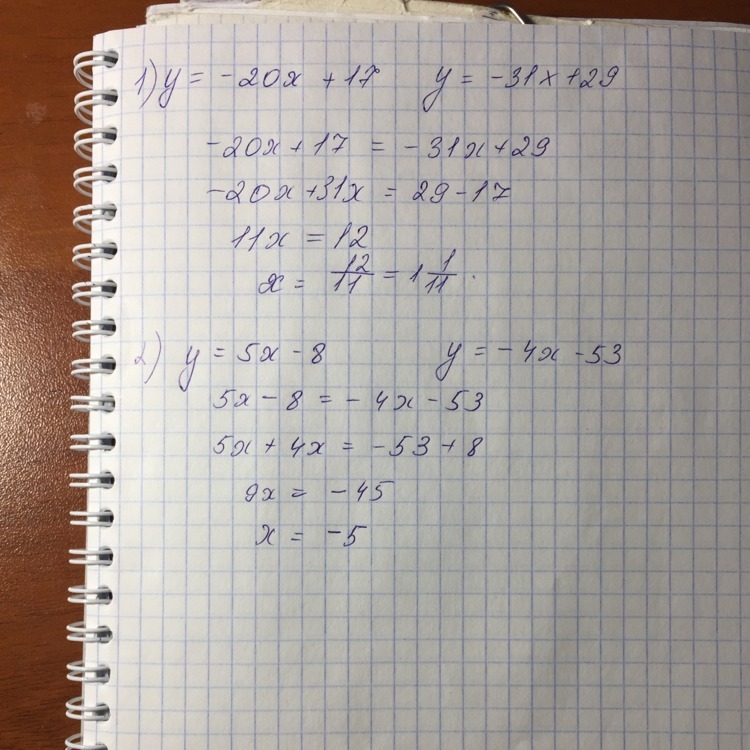 1) y = -20x + 17 y = -31x+29
-20x+17 = -31x+29
-20x+31x = 29-17
11x = 12
x = 12/11 = 1 1/11.
2) y = 5x - 8 y = -4x -53
5x - 8 = -4x - 53
5x + 4x = -53 + 8
9x = -45
x = -5